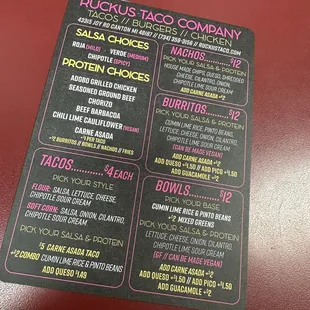 RUCKUS TACO COMPANY
TACOS // BURGERS // CHICKEN
43315 JOY RD CANTON MI 48187 // (734) 356-3156 // RUCKUSTACO.COM
SALSA CHOICES
ROJA (MILD) • VERDE (MEDIUM)
CHIPOTLE (SPICY)
PROTEIN CHOICES
ADOBO GRILLED CHICKEN
SEASONED GROUND BEEF
CHORIZO
BEEF BARBACOA
CHILI LIME CAULIFLOWER (VEGAN)
CARNE ASADA
TACOS $4 EACH
PICK YOUR STYLE
FLOUR: SALSA, LETTUCE, CHEESE, CHIPOTLE SOUR CREAM
SOFT CORN: SALSA, ONION, CILANTRO, CHIPOTLE SOUR CREAM
PICK YOUR SALSA & PROTEIN
$5 CARNE ASADA TACO
+$2 COMBO CUMIN LIME RICE & PINTO BEANS
ADD QUESO $1.49
NACHOS $12
PICK YOUR SALSA & PROTEIN
HOUSE MADE CHIPS, QUESO, SHREDDED
CHEESE, ONION, CILANTRO,
CHIPOTLE SOUR CREAM
ADD CARNE ASADA +$2
BURRITOS $12
PICK YOUR SALSA & PROTEIN
CUMIN LIME RICE AND PINTO BEANS,
LETTUCE, CHEESE, ONION, CILANTRO,
CHIPOTLE SOUR CREAM
(CAN BE MADE VEGAN)
ADD CARNE ASADA +$2
ADD QUESO +$1.50 // ADD PICO +$1.50
ADD GUACAMOLE +$2
BOWLS $12
PICK YOUR BASE
CUMIN LIME RICE & PINTO BEANS
+$2 MIXED GREENS
PICK YOUR SALSA & PROTEIN
LETTUCE, CHEESE, ONION, CILANTRO,
CHIPOTLE SOUR CREAM
(GF // CAN BE MADE VEGAN)
ADD CARNE ASADA +$2
ADD QUESO +$1.50 // ADD PICO +$1.50
ADD GUACAMOLE +$2